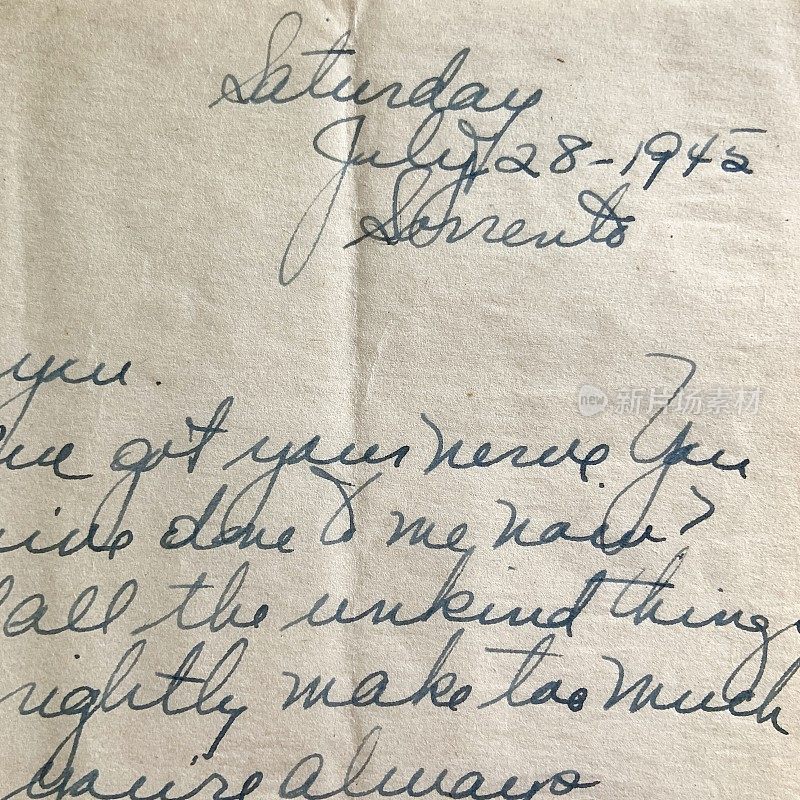 Saturday
July 28-1945
Sorrento
you.
got your nerve. You
done to me now?
all the unkind things
rightly make too much
you're always
new 新片场素材